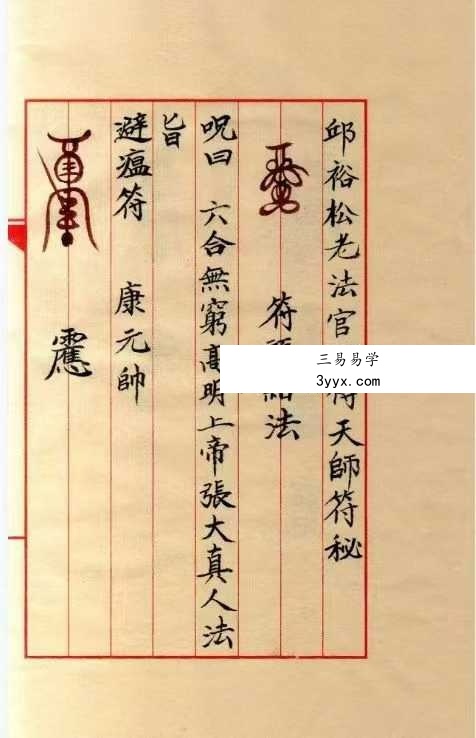 邱裕松老法官
天師符秘
符
法
呪曰 六合無窮高明上帝張大真人法
旨
避瘟符 康元帥
三易易学
3yyx.com